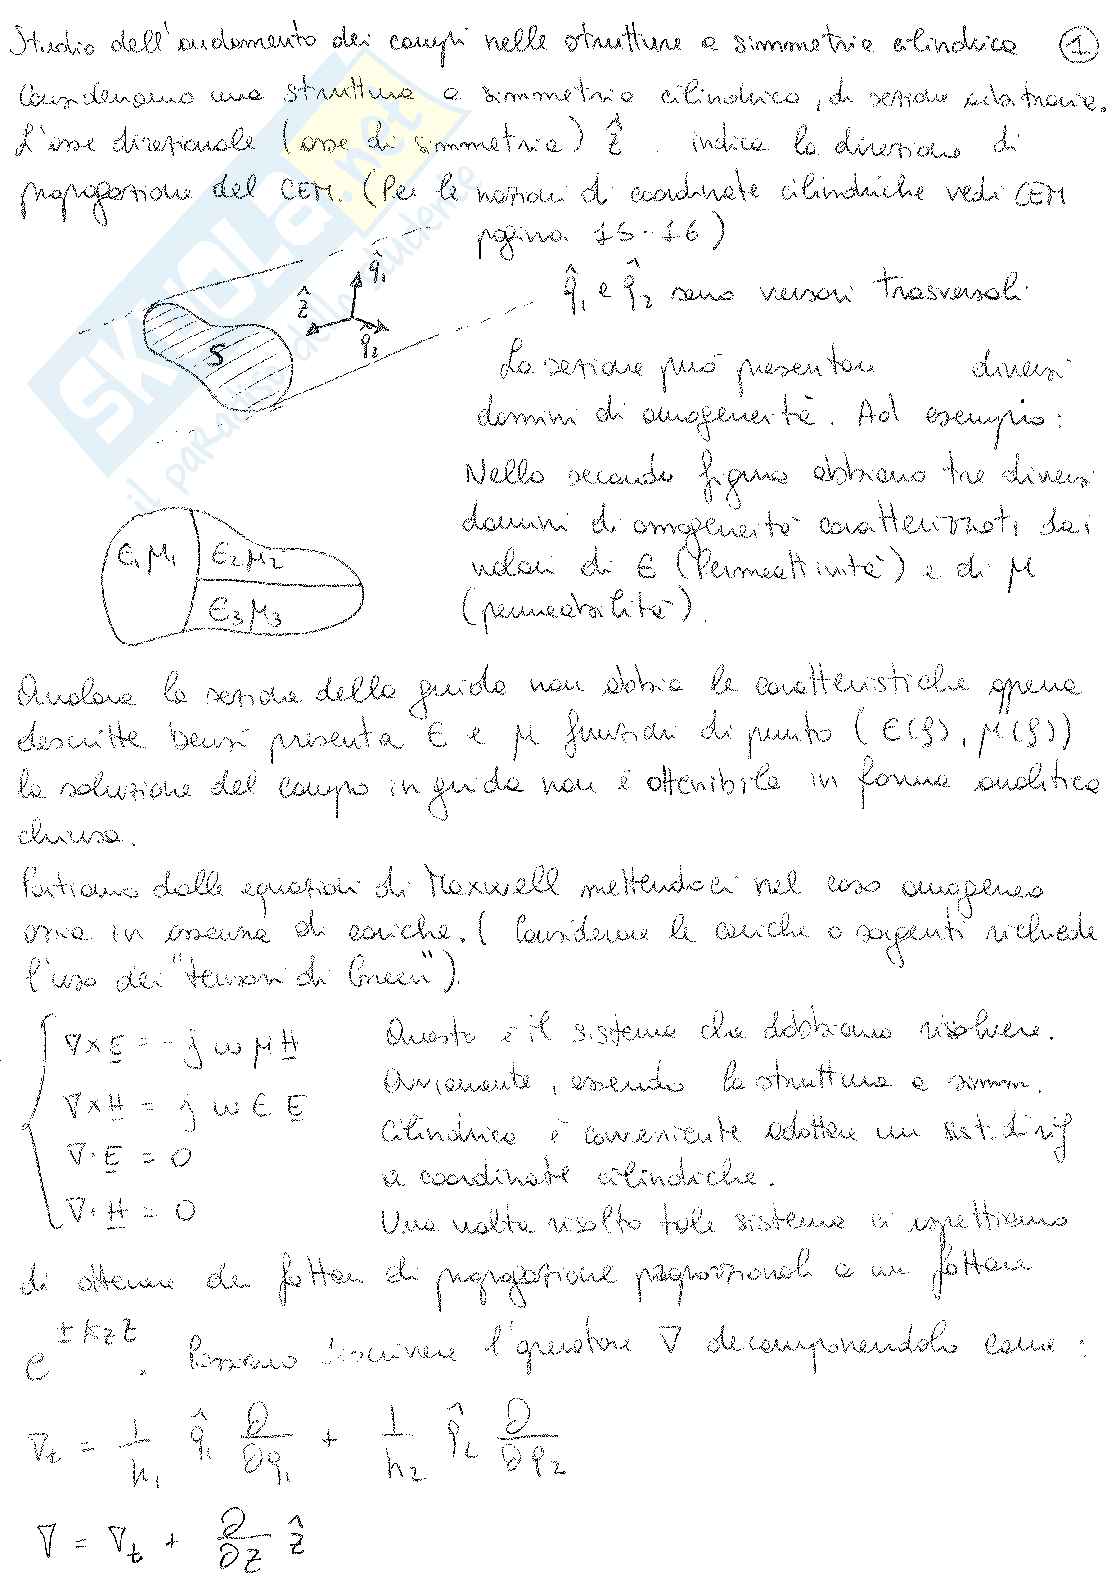 Studio dell'andamento dei campi nelle strutture a simmetria cilindrica ①
Consideriamo una struttura a simmetria cilindrica, di sezione arbitraria.
L'asse direzionale (asse di simmetria) ẑ indica la direzione di
propagazione del CEM. (Per le nozioni di coordinate cilindriche vedi CEM
pagina 15-16)
q̂₁ e q̂₂ sono versori trasversali
ẑ q̂₁ q̂₂
S
La sezione può presentare diversi
domini di omogeneità. Ad esempio:
Nella seconda figura abbiamo tre diversi
domini di omogeneità caratterizzati dai
valori di ε (Permettività) e di μ
(permeabilità).
ε₁μ₁ ε₂μ₂
ε₃μ₃
Qualora la sezione della guida non abbia le caratteristiche appena
descritte bensì presenta ε e μ funzioni di punto (ε(ρ), μ(ρ))
la soluzione del campo in guida non è ottenibile in forma analitica
chiusa.
Partiamo dalle equazioni di Maxwell mettendoci nel caso omogeneo
ossia in assenza di cariche. (Considerare le cariche o sorgenti richiede
l'uso dei "tensori di Green").
∇×E = -jωμH
∇×H = jωεE
∇·E = 0
∇·H = 0
Questo è il sistema che dobbiamo risolvere.
Ovviamente, essendo la struttura a simm.
cilindrica è conveniente adottare un sist. di rif
a coordinate cilindriche.
Una volta risolto tale sistema ci aspettiamo
di ottenere dei fattori di propagazione proporzionali a un fattore
e^{±Kz z}. Possiamo scrivere l'operatore ∇ decomponendolo come:
∇t = 1/h₁ q̂₁ ∂/∂q₁ + 1/h₂ q̂₂ ∂/∂q₂
∇ = ∇t + ∂/∂z ẑ
SKUOLA.net